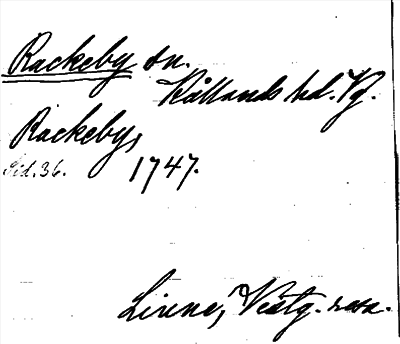 Rackeby sn.
Kållands hd. Vg.
Rackeby,
Sid. 36. 1747.
Linne, Västg. resa.